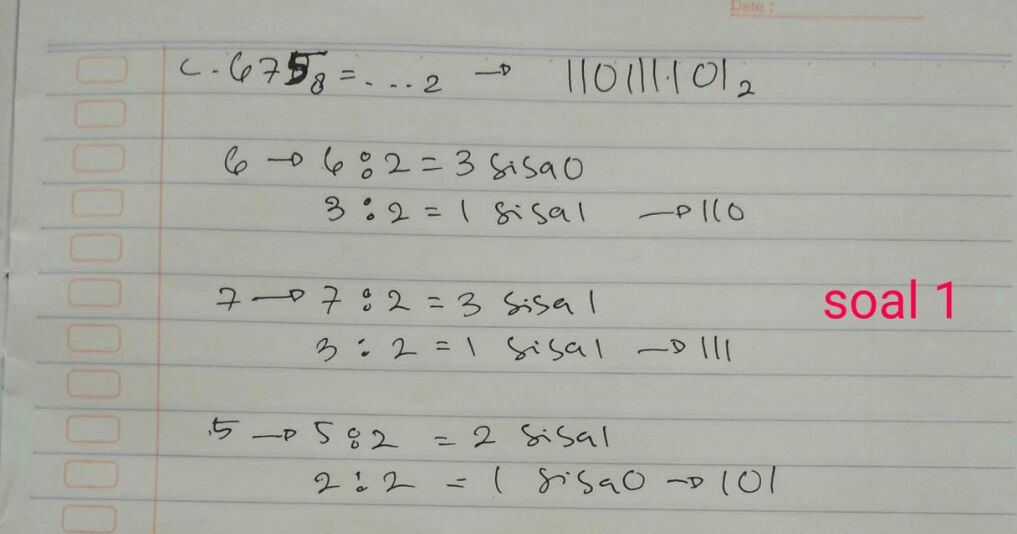 Date :
c. 675₈ = .... ₂ → 110111101₂
6 → 6 : 2 = 3 sisa 0
3 : 2 = 1 sisa 1 → 110
7 → 7 : 2 = 3 sisa 1
soal 1
3 : 2 = 1 sisa 1 → 111
5 → 5 : 2 = 2 sisa 1
2 : 2 = 1 sisa 0 → 101